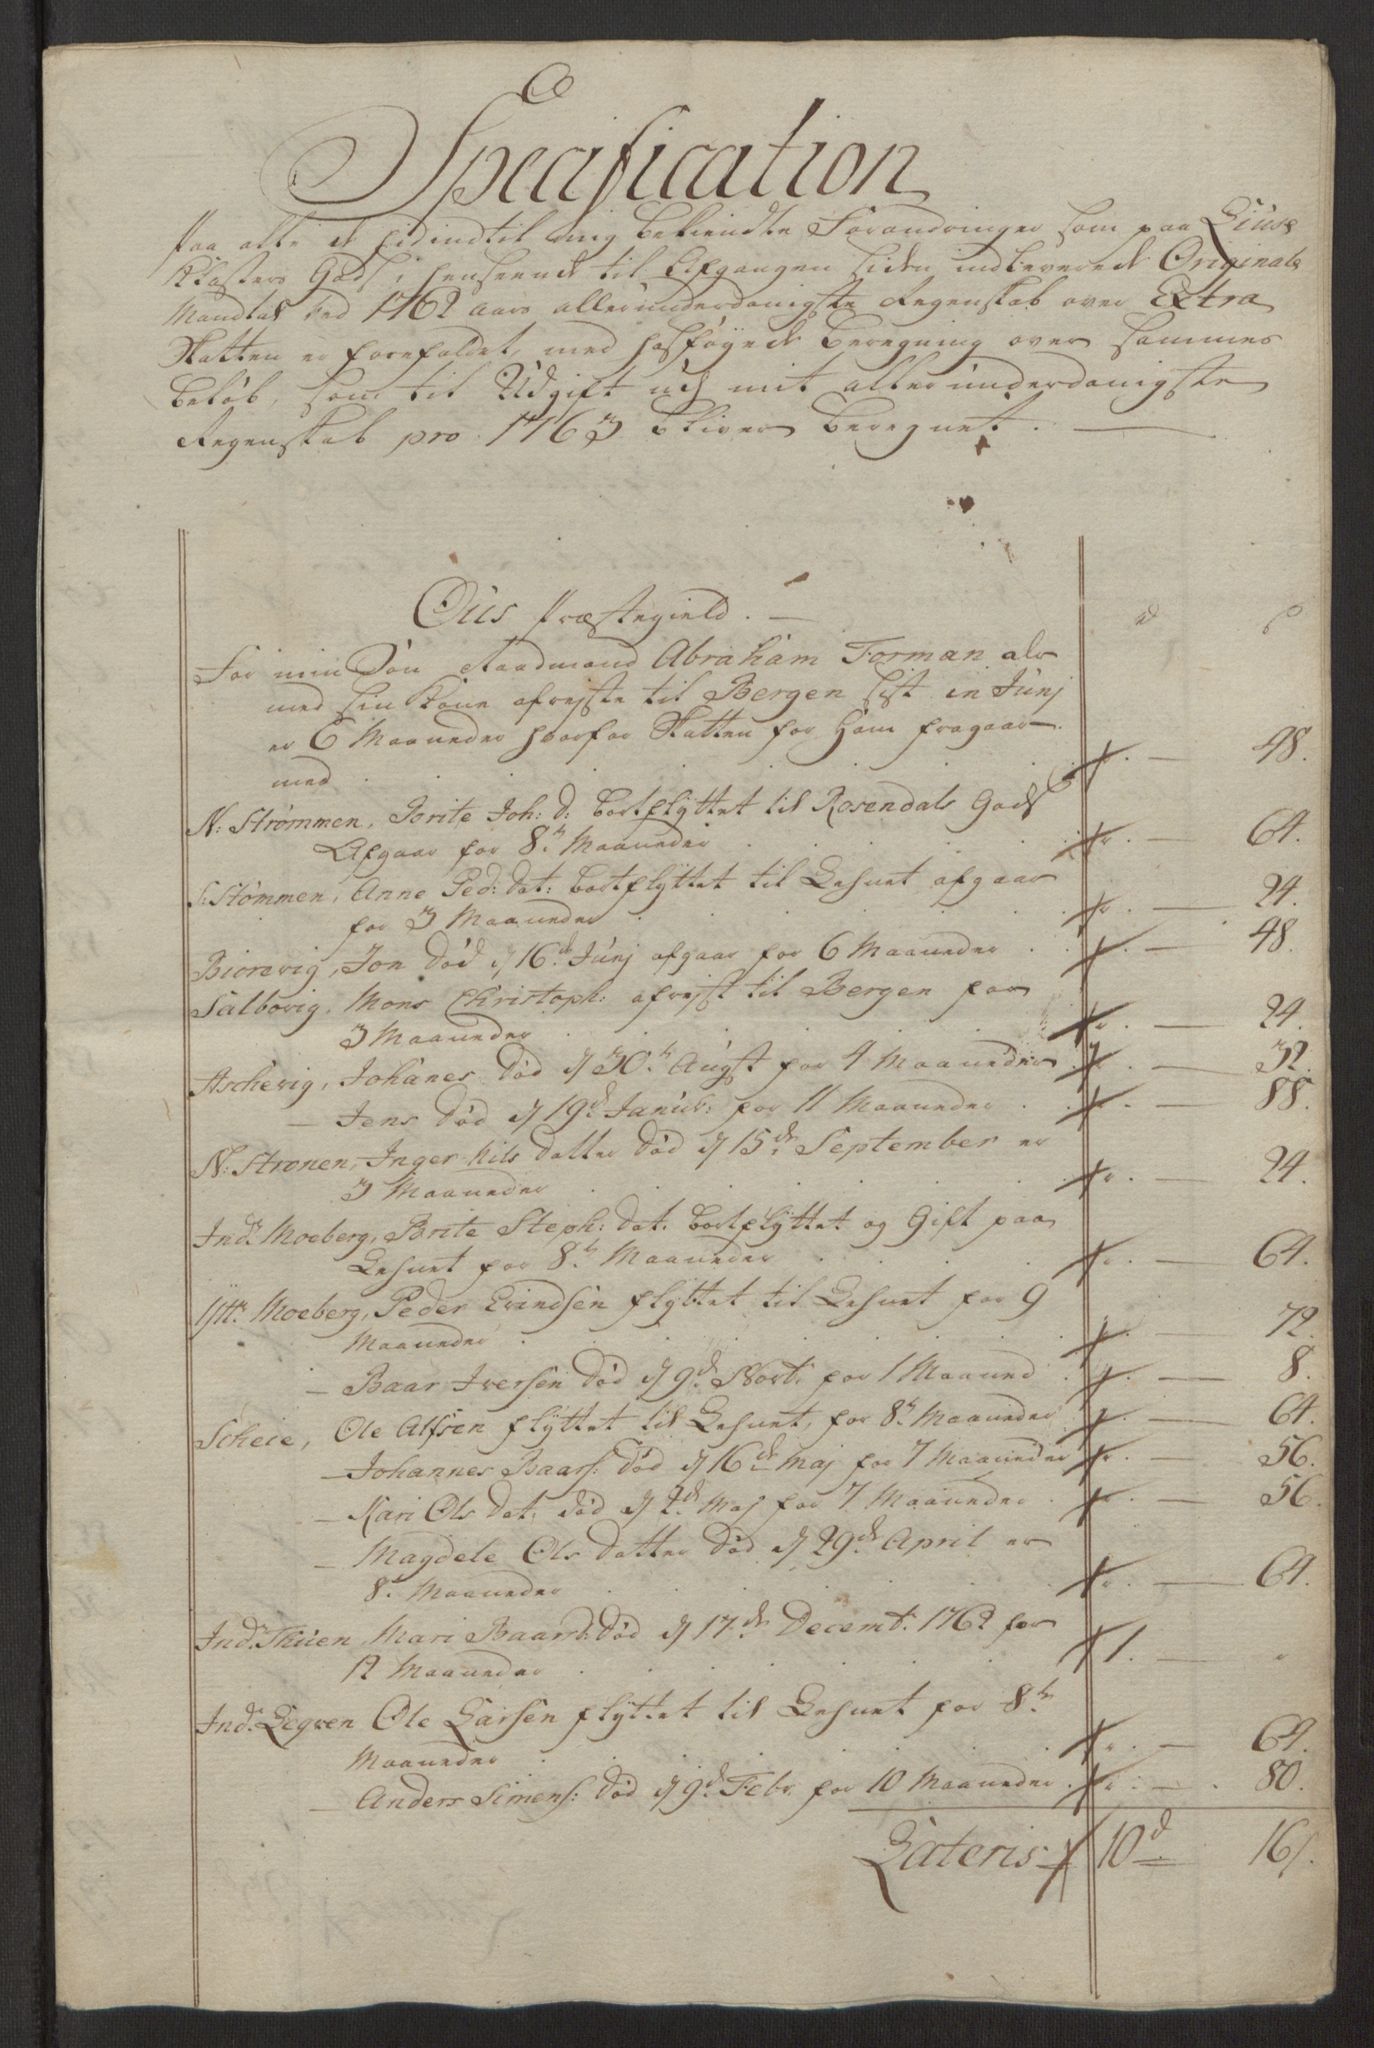 Specification
Paa alle de hidindtil mig bekiendte Forandringer som paa Liuse
Klosters Gods, i henseende til Afgangen siden indleverede Original
Mandtal ved 1762 aars allerunderdanigste Regenskab over Extra
Skatten er forefaldet, med hosføyede beregning over sammes
beløb, som til Udgift ved mit allerunderdanigste
Regenskab pro 1763 bliver beregnet.
Ous Præstegield.
For min Søn Raadmand Abraham Forman der
med sin kone afreiste til Bergen sist in Junj
er 6 Maaneder hvorfor Skatten for ham fragaar
med . 48.
N: Strømmen, Brite Joh: d: bortflyttet til Rosendals Gods
Afgaar for 8 Maaneder 64.
S: Stømmen, Anne Ped: dat: bortflyttet til Lehnet afgaar
for 3 Maaneder 24.
Biorevig, Jon død d 16d Junj afgaar for 6 Maaneder 48.
Salbovig, Mons Christoph: afreist til Bergen for
3 Maaneder 24.
Aschevig, Johanes død d 30t Augst for 4 Maaneder 32.
— Jens død d 19d Januar: for 11 Maaneder 88.
N: Strønen, Inger Nils datter død d 15de September er
3 Maaneder 24.
Ind: Moeberg, Brite Steph: dat. bortflyttet og Gift paa
Lehnet for 8 Maaneder 64.
Ytt: Moeberg, Peder Erindsen flyttet til Lehnet for 9
Maaneder 72.
— Baar Iversen død d 9d Novb: for 1 Maaned 8.
Scheie, Ole Alfsen flyttet til Lehnet, for 8 Maaneder 64.
— Johannes Baars: død d 16de Maj for 7 Maaneder 56.
— Kari Ols dat: død d 2d Maj for 7 Maaneder 56.
— Magdele Ols datter død d 29de April er
8 Maaneder 64.
Ind: Thuen Mari Baard: død d 17de Decemb: 1762 for
12 Maaneder 1.
Ind: Legven Ole Larsen flyttet til Lehnet for 8
Maaneder 64.
— Anders Simens: død d 9d Febr. for 10 Maaneder 80.
Lateris 10d 16s.